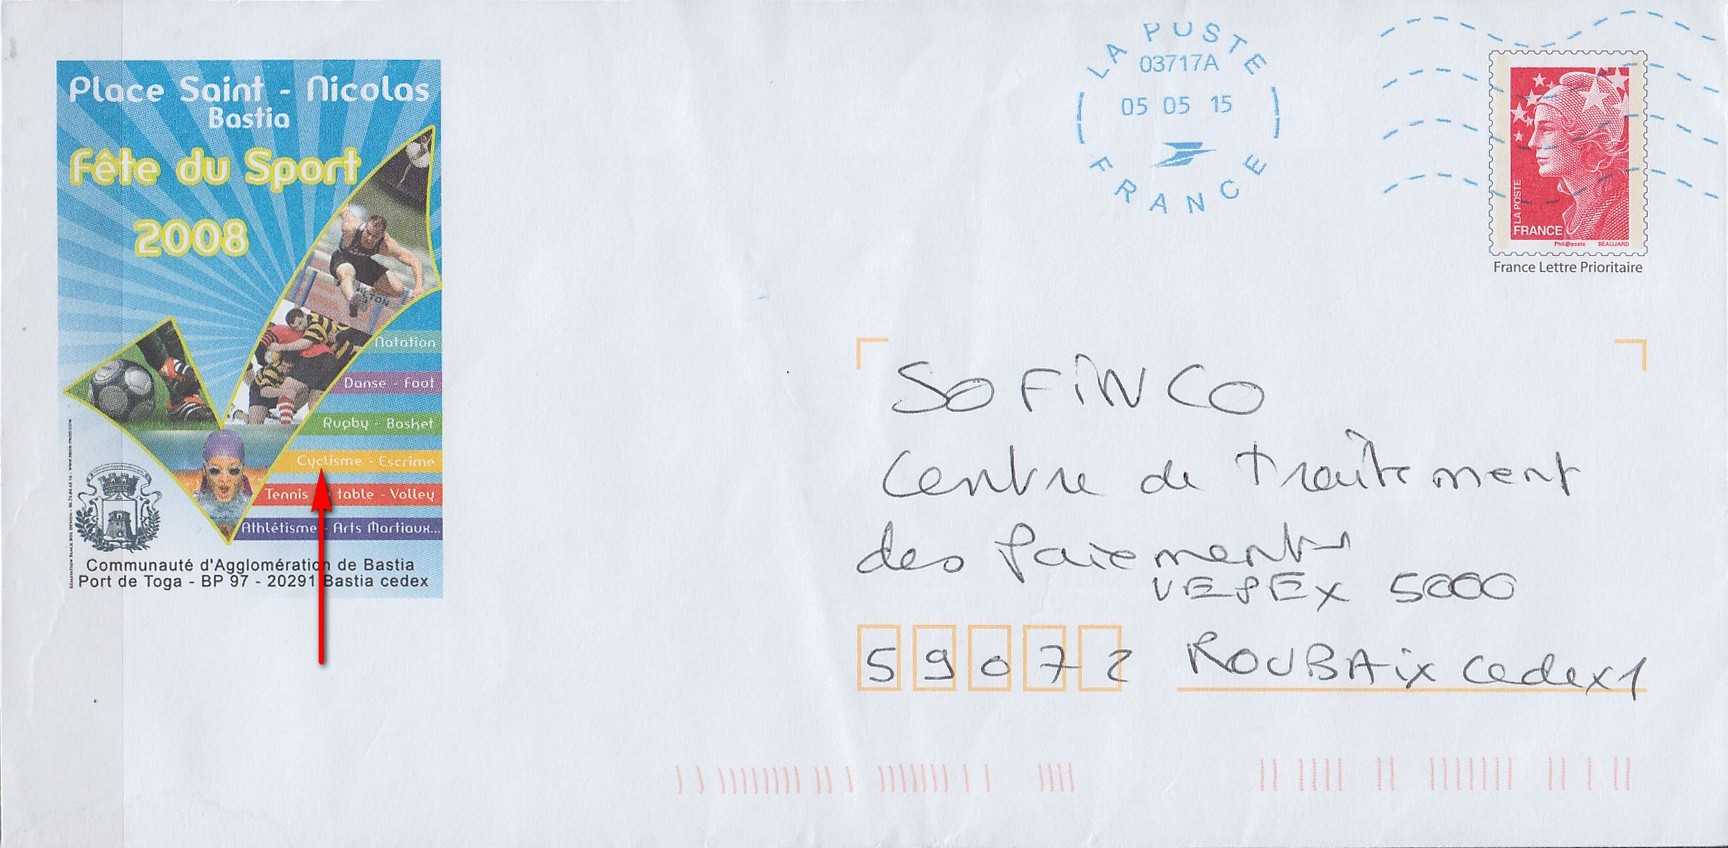 Place Saint - Nicolas
Bastia
Fête du Sport
2008
Natation
Danse - Foot
Rugby - Basket
Cyclisme - Escrime
Tennis table - Volley
Athlétisme - Arts Martiaux...
Communauté d'Agglomération de Bastia
Port de Toga - BP 97 - 20291 Bastia cedex
LA POSTE
03717A
05 05 15
FRANCE
LA POSTE
FRANCE
Phil@poste BEAUJARD
France Lettre Prioritaire
SOFINCO
Centre de Traitement
des paiements
VEPEX 5000
59072 ROUBAIX cedex 1